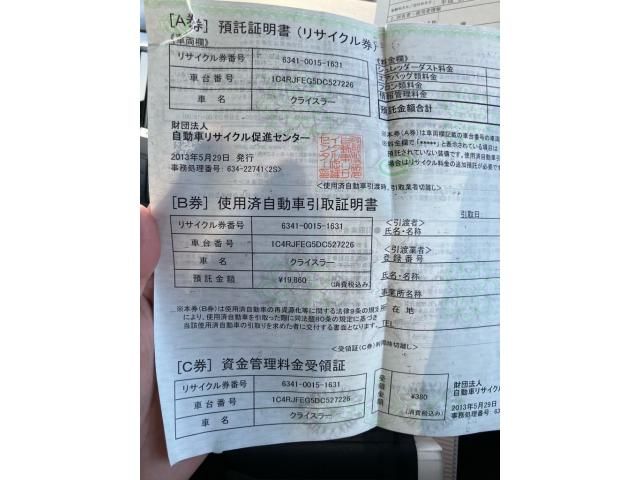 [A券] 預託証明書 (リサイクル券)
《車両欄》
リサイクル券番号 6341-0015-1631
車台番号 1C4RJFEG5DC527226
車名 クライスラー
《料金欄》
シュレッダーダスト料金
エアバッグ類料金
フロン類料金
情報管理料金
預託金額合計
財団法人
自動車リサイクル促進センター
2013年5月29日 発行
事務処理番号: 634-22741<2S>
※本券(A券)は車両欄記載の車台番号の車両
※料金欄で「*****」と表示されている場合は
預託されていない装備です。使用済自動車
場合はリサイクル料金の追加預託が必要です
<使用済自動車引渡時、引取業者切離し>
[B券] 使用済自動車引取証明書
リサイクル券番号 6341-0015-1631
車台番号 1C4RJFEG5DC527226
車名 クライスラー
預託金額 ¥19,860 (消費税込み)
引取日
<引渡者>
氏名・名称
<引渡業者>
登録番号
氏名・名称
事業所名称
在地
TEL
※本券(B券)は使用済自動車の再資源化等に関する法律9条の規定
により、使用済自動車を引取った際に同法第80条の規定に基づき
当該使用済自動車の引取りを求めた者に交付する書面となります。
<受領証(C券)利用時切離し>
[C券] 資金管理料金受領証
リサイクル券番号 6341-0015-1631
車台番号 1C4RJFEG5DC527226
車名 クライスラー
受領金額 ¥380 (消費税込み)
財団法人
自動車リサイ
2013年5月29日
事務処理番号: 63